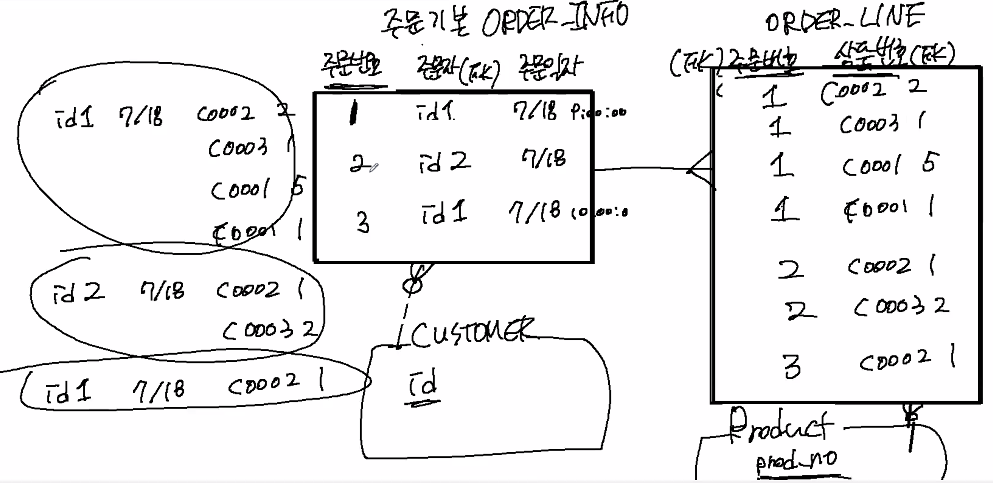 주문기본 ORDER_INFO
주문번호 주문자(FK) 주문일자
1 id1 7/18 9:00:00
2 id2 7/18
3 id1 7/18 10:00:0
ORDER_LINE
(FK) 주문번호 상품번호(FK)
1 C0002 2
1 C0003 1
1 C0001 5
1 F0001 1
2 C0002 1
2 C0003 2
3 C0002 1
id1 7/18 C0002 2
C0003 1
C0001 5
F0001 1
id2 7/18 C0002 1
C0003 2
id1 7/18 C0002 1
CUSTOMER
id
Product
prod_no